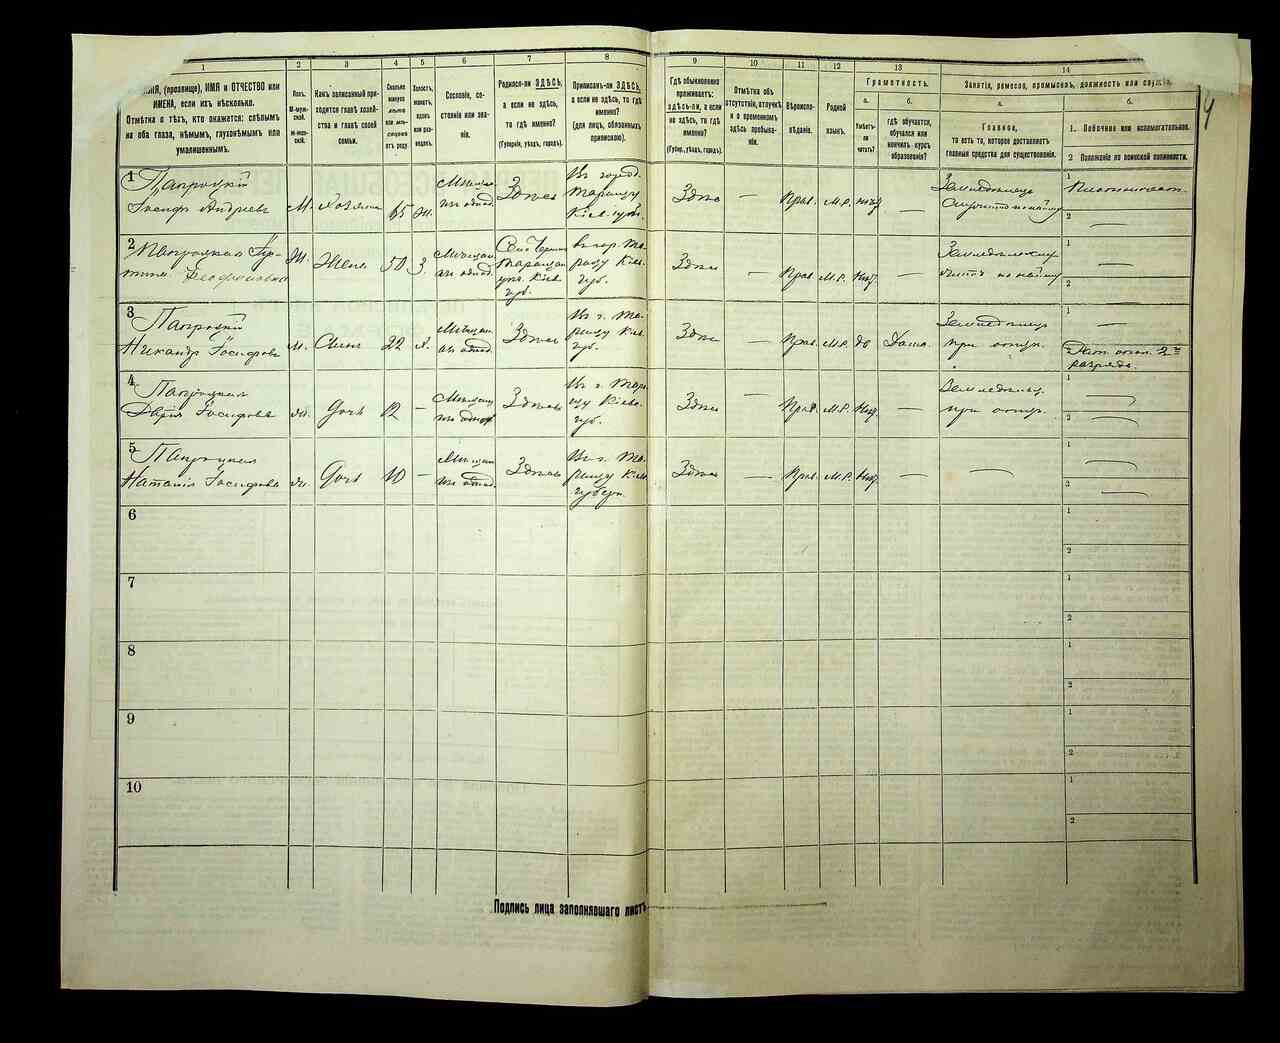 1
2
3
4
5
6
7
8
9
10
11
12
13
14
ИМЯ и ОТЧЕСТВО или
ИМЕНА, если ихъ нѣсколько.
Отмѣтка о тѣхъ, кто окажется: слѣпымъ
на оба глаза, нѣмымъ, глухонѣмымъ или
умалишеннымъ.
Полъ.
М-муж-
ской.
Какъ записанный при-
ходится главѣ хозяй-
ства и главѣ своей
семьи.
Сколько
минуло
лѣтъ
или мѣ-
сяцевъ
отъ роду
Холостъ,
женатъ,
вдовъ
или раз-
веденъ.
Сословіе, со-
стояніе или зва-
ніе.
Родился-ли ЗДѢСЬ,
а если не здѣсь,
то гдѣ именно?
(Губернія, уѣздъ, городъ).
Приписанъ-ли ЗДѢСЬ,
а если не здѣсь, то гдѣ
именно?
(для лицъ, обязанныхъ
припискою).
Гдѣ обыкновенно
проживаетъ:
здѣсь-ли, а если
не здѣсь, то гдѣ
именно?
(Губер., уѣздъ, городъ).
Отмѣтка объ
отсутствіи, отлучкѣ
и о временномъ
здѣсь пребыва-
ніи.
Вѣроиспо-
вѣданіе.
Родной
языкъ.
Грамотность.
а.
Умѣетъ-
ли
читать?
б.
гдѣ обучается,
обучался или
кончилъ курсъ
образованія?
Занятія, ремесло, промыселъ, должность или служба.
а.
Главное,
то есть то, которое доставляетъ
главныя средства для существованія.
б.
1. Побочное или вспомогательное.
2 Положеніе по воинской повинности.
4
1
Папроцкій
Іосифъ Андреевъ
М.
Хозяинъ
65
Ж.
Мѣщан.
Здѣсь
Въ город.
Таращу
Кіев. губ.
Здѣсь
—
Прав.
М.Р.
—
1
2
—
2
Папроцкая
Жена
50
З
Мѣщан.
Таращан.
Кіев
губ.
въ гор. Та-
ращу Кіев.
губ.
Здѣсь
—
Прав.
М.Р.
1
—
2
—
3
Папроцкій
Никандръ Іосифовъ
м.
Сынъ
22
Х.
Мѣщан.
Здѣсь
Въ г. Та-
ращу Кіев.
губ.
Здѣсь
—
Прав.
М.Р.
да
Дома
при отцѣ.
1
—
2
разряда.
4
Папроцкая
Дарія Іосифова
Дочь
12
—
Мѣщан.
Здѣсь
Въ г. Тара-
щу Кіев.
губ.
Здѣсь
—
Прав.
М.Р.
—
при отцѣ.
1
—
2
—
5
Папроцкая
Наталія Іосифова
Дочь
10
—
Мѣщан.
Здѣсь
Въ г. Та-
ращу Кіев.
губерн.
Здѣсь
—
Прав.
М.Р.
—
—
1
—
2
—
6
1
2
7
1
2
8
1
2
9
1
2
10
1
2
Подпись лица заполнявшаго листъ